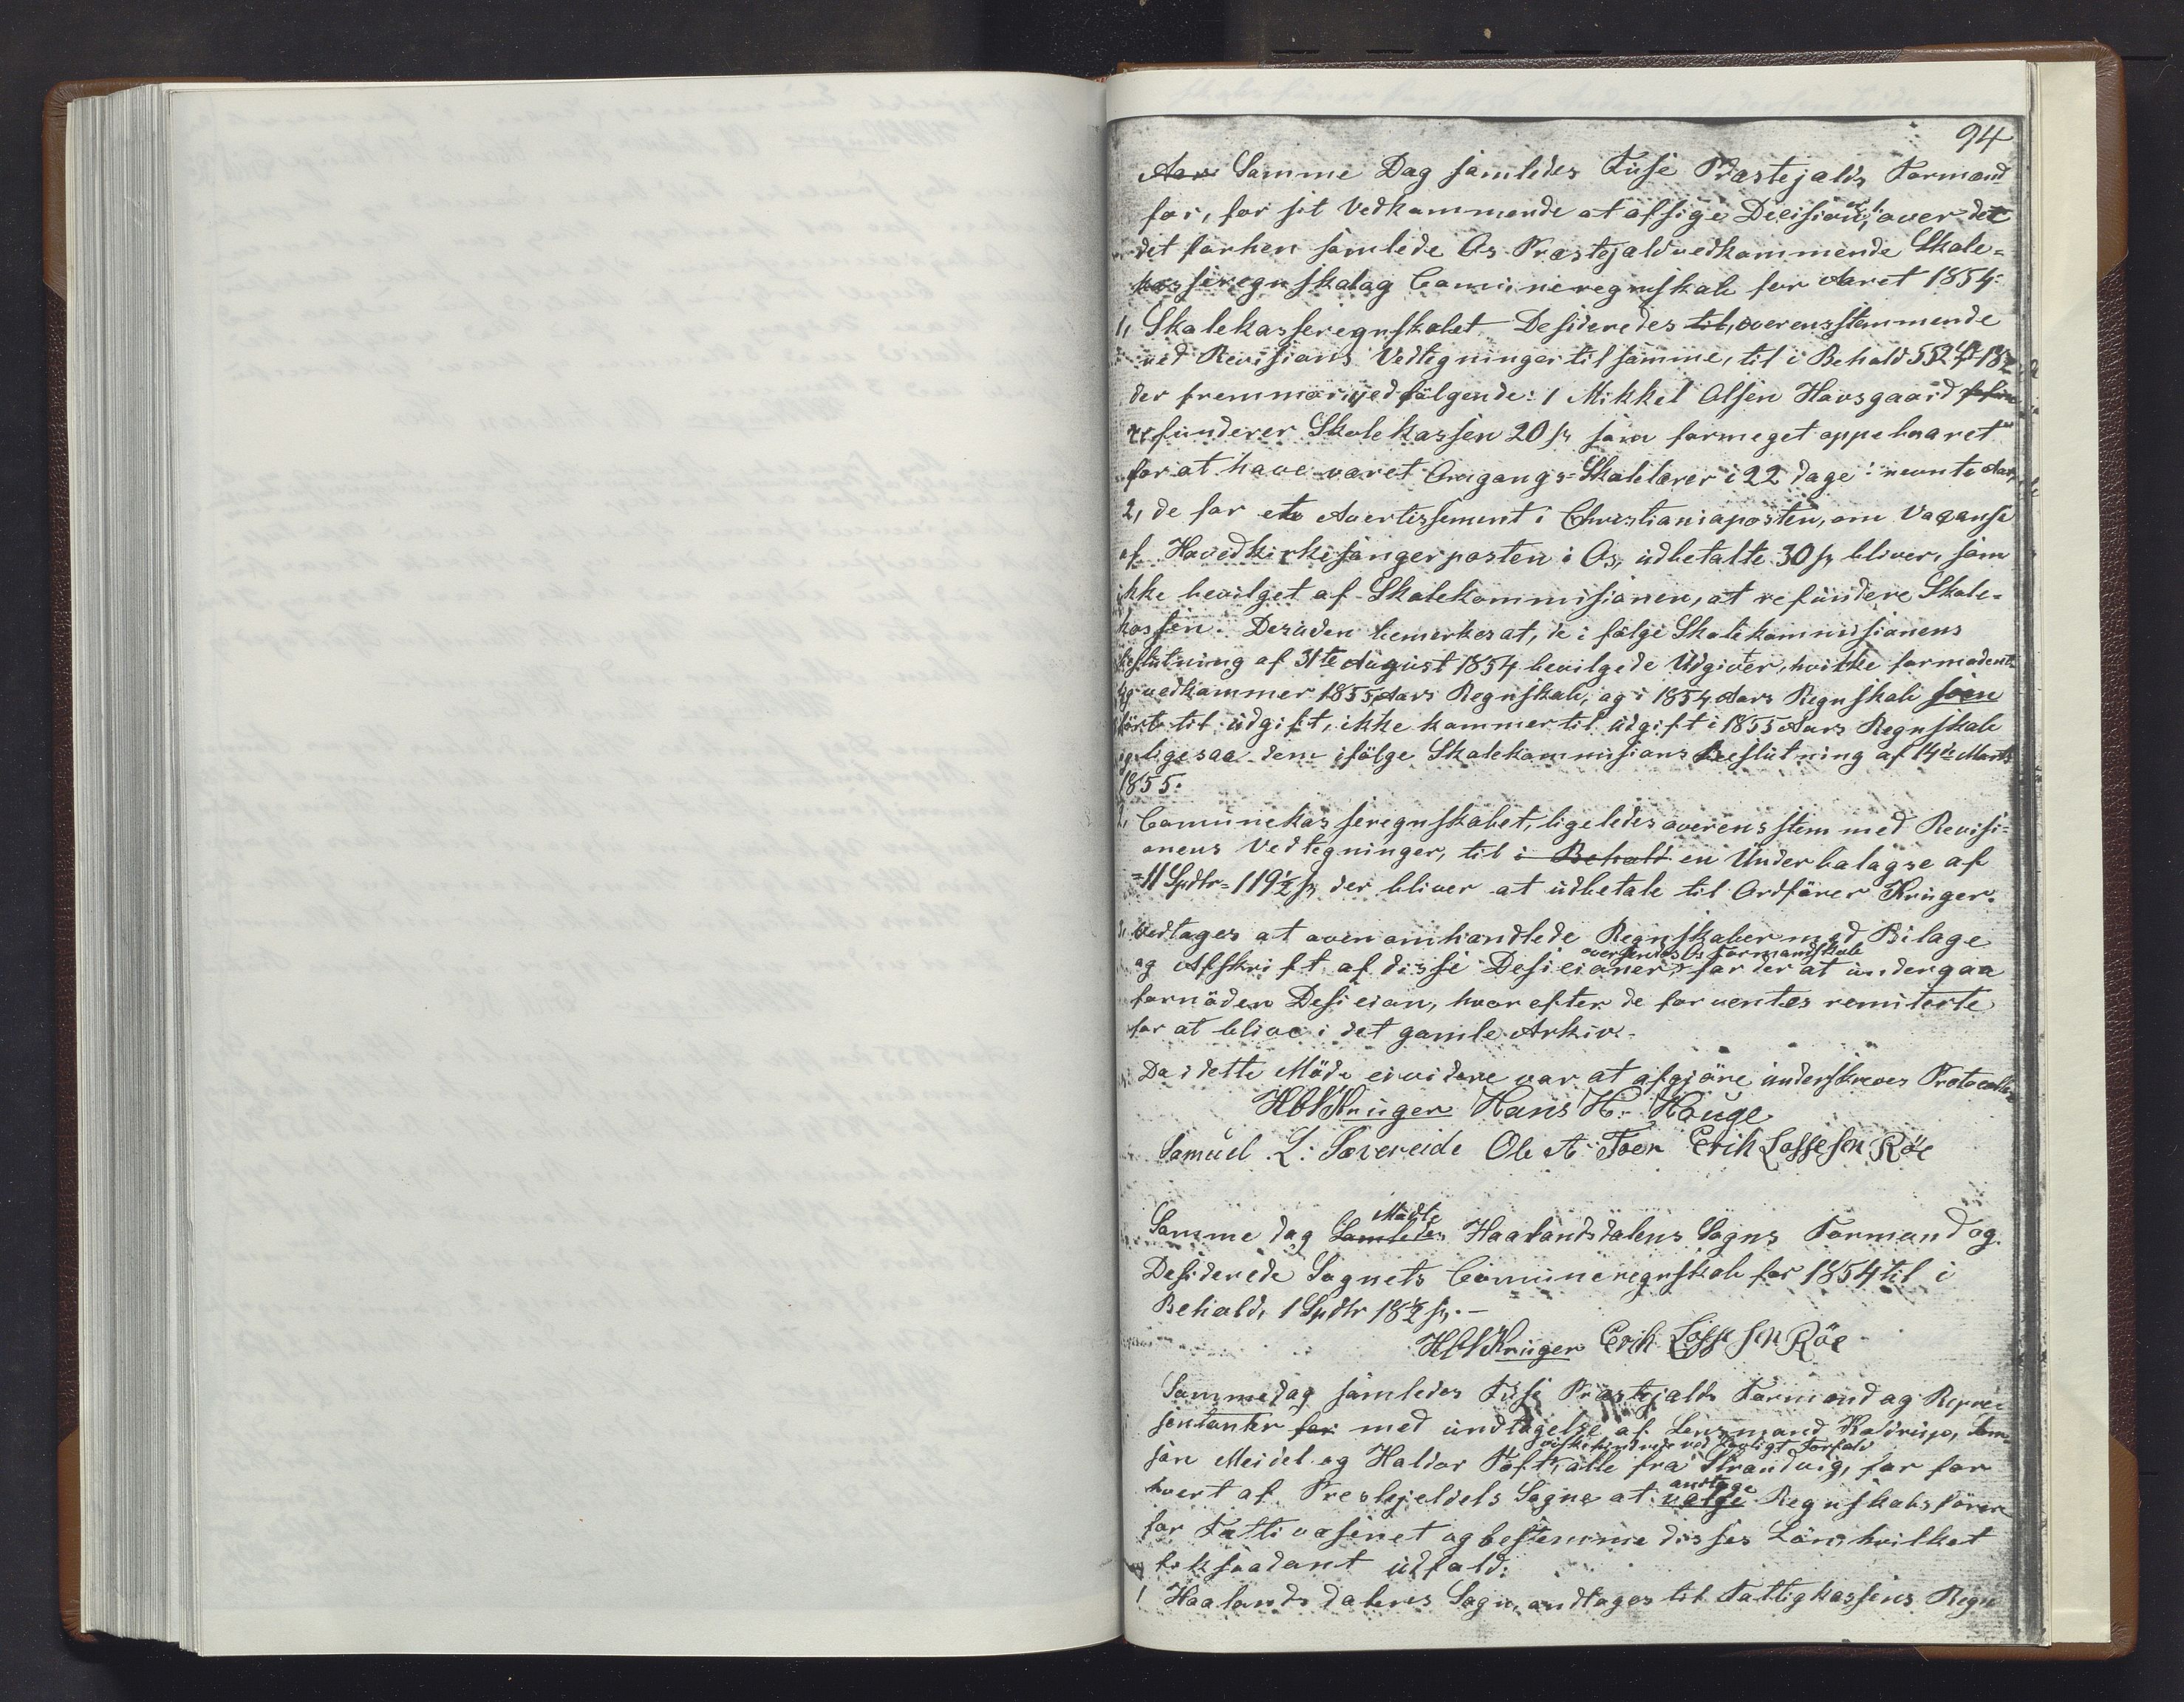 94
Aar Samme Dag samledes Fuse Præstejælds Formænd
for, for sit Vedkommende at afsige Decision, over det
det forhen samlede Os Præstejæld vedkommende Skole-
kasseregnskab og Comuneregnskab for Aaret 1854:
1, Skolekasseregnskabet Desideredes til, overensstemmende
ved Revisions Vedtegninger til samme, til i Behold 552
der fremmer ved følgende: 1 Mikkel Olsen Havsgaard
refunderer Skolekassen 20 s som formeget oppebaaret
for at have været Omgangs-Skolelærer i 22 dage nevnte Aar,
2, de for et Avertissement i Christianiaposten, om Vaganse
af Hovedkirkesangerposten i Os, udbetalte 30 s bliver, som
ikke bevilget af Skolekommisionen, at refundere Skole-
kassen. Desuden bemerkes at, de i følge Skolekommisionens
Beslutning af 31te August 1854 bevilgede Udgivter, hvilke formodent-
lig vedkommer 1855 Aars Regnskab, og i 1854 Aars Regnskab som
ført til udgift, ikke kommer til udgift i 1855 Aars Regnskab
og ligesaa dem ifølge Skolekommisions Beslutning af 14de Marts
1855.
2, Comunekasseregnskabet, ligeledes overensstem med Revisi-
onens Vedtegninger, til i Behold en Underbalagse af
=11 Spdlr= 119½ s, der bliver at udbetale til Ordfører Krüger.
3, Vedtages at ovenomhandlede Regnskaber med Bilage
oversendes Os Formandskab
og Afskrift af disse Desicioner, for der at undergaa
fornøden Desicion, hvorefter de forventes remiterte
for at blive i det gamle Arkiv.
Da i dette Møde ei videre var at afgjøre underskreves Protocollen
HCSKrüger Hans H. Hauge
Samuel L: Sævereide Ole A Toen Erik Lassesen Röe
Mødte
Samme dag Samledes Haalandsdalens Sogns Formænd og
Desiderede Sognets Comuneregnskab for 1854 til i
Behold, 1 Spdlr 18½ s.-
HCSKrüger Erik Lassesen Röe
Samme dag samledes Fuse Præstejælds Formænd og Repræ-
sentanter for med undtagelse af Lensmand Koldrup,
ved Lovligt Forfald
sön Meidel og Haldor Toft, alle fra Strandvig, for for
andtage
hvert af Prestejeldets Sogne at vælge Regnskabsförer
for Fattivæsenet og bestemme disses Løn, hvilket
fik saadant udfald:
1 Haalandsdalens Sogn, andtages til Fattigkassens Regn